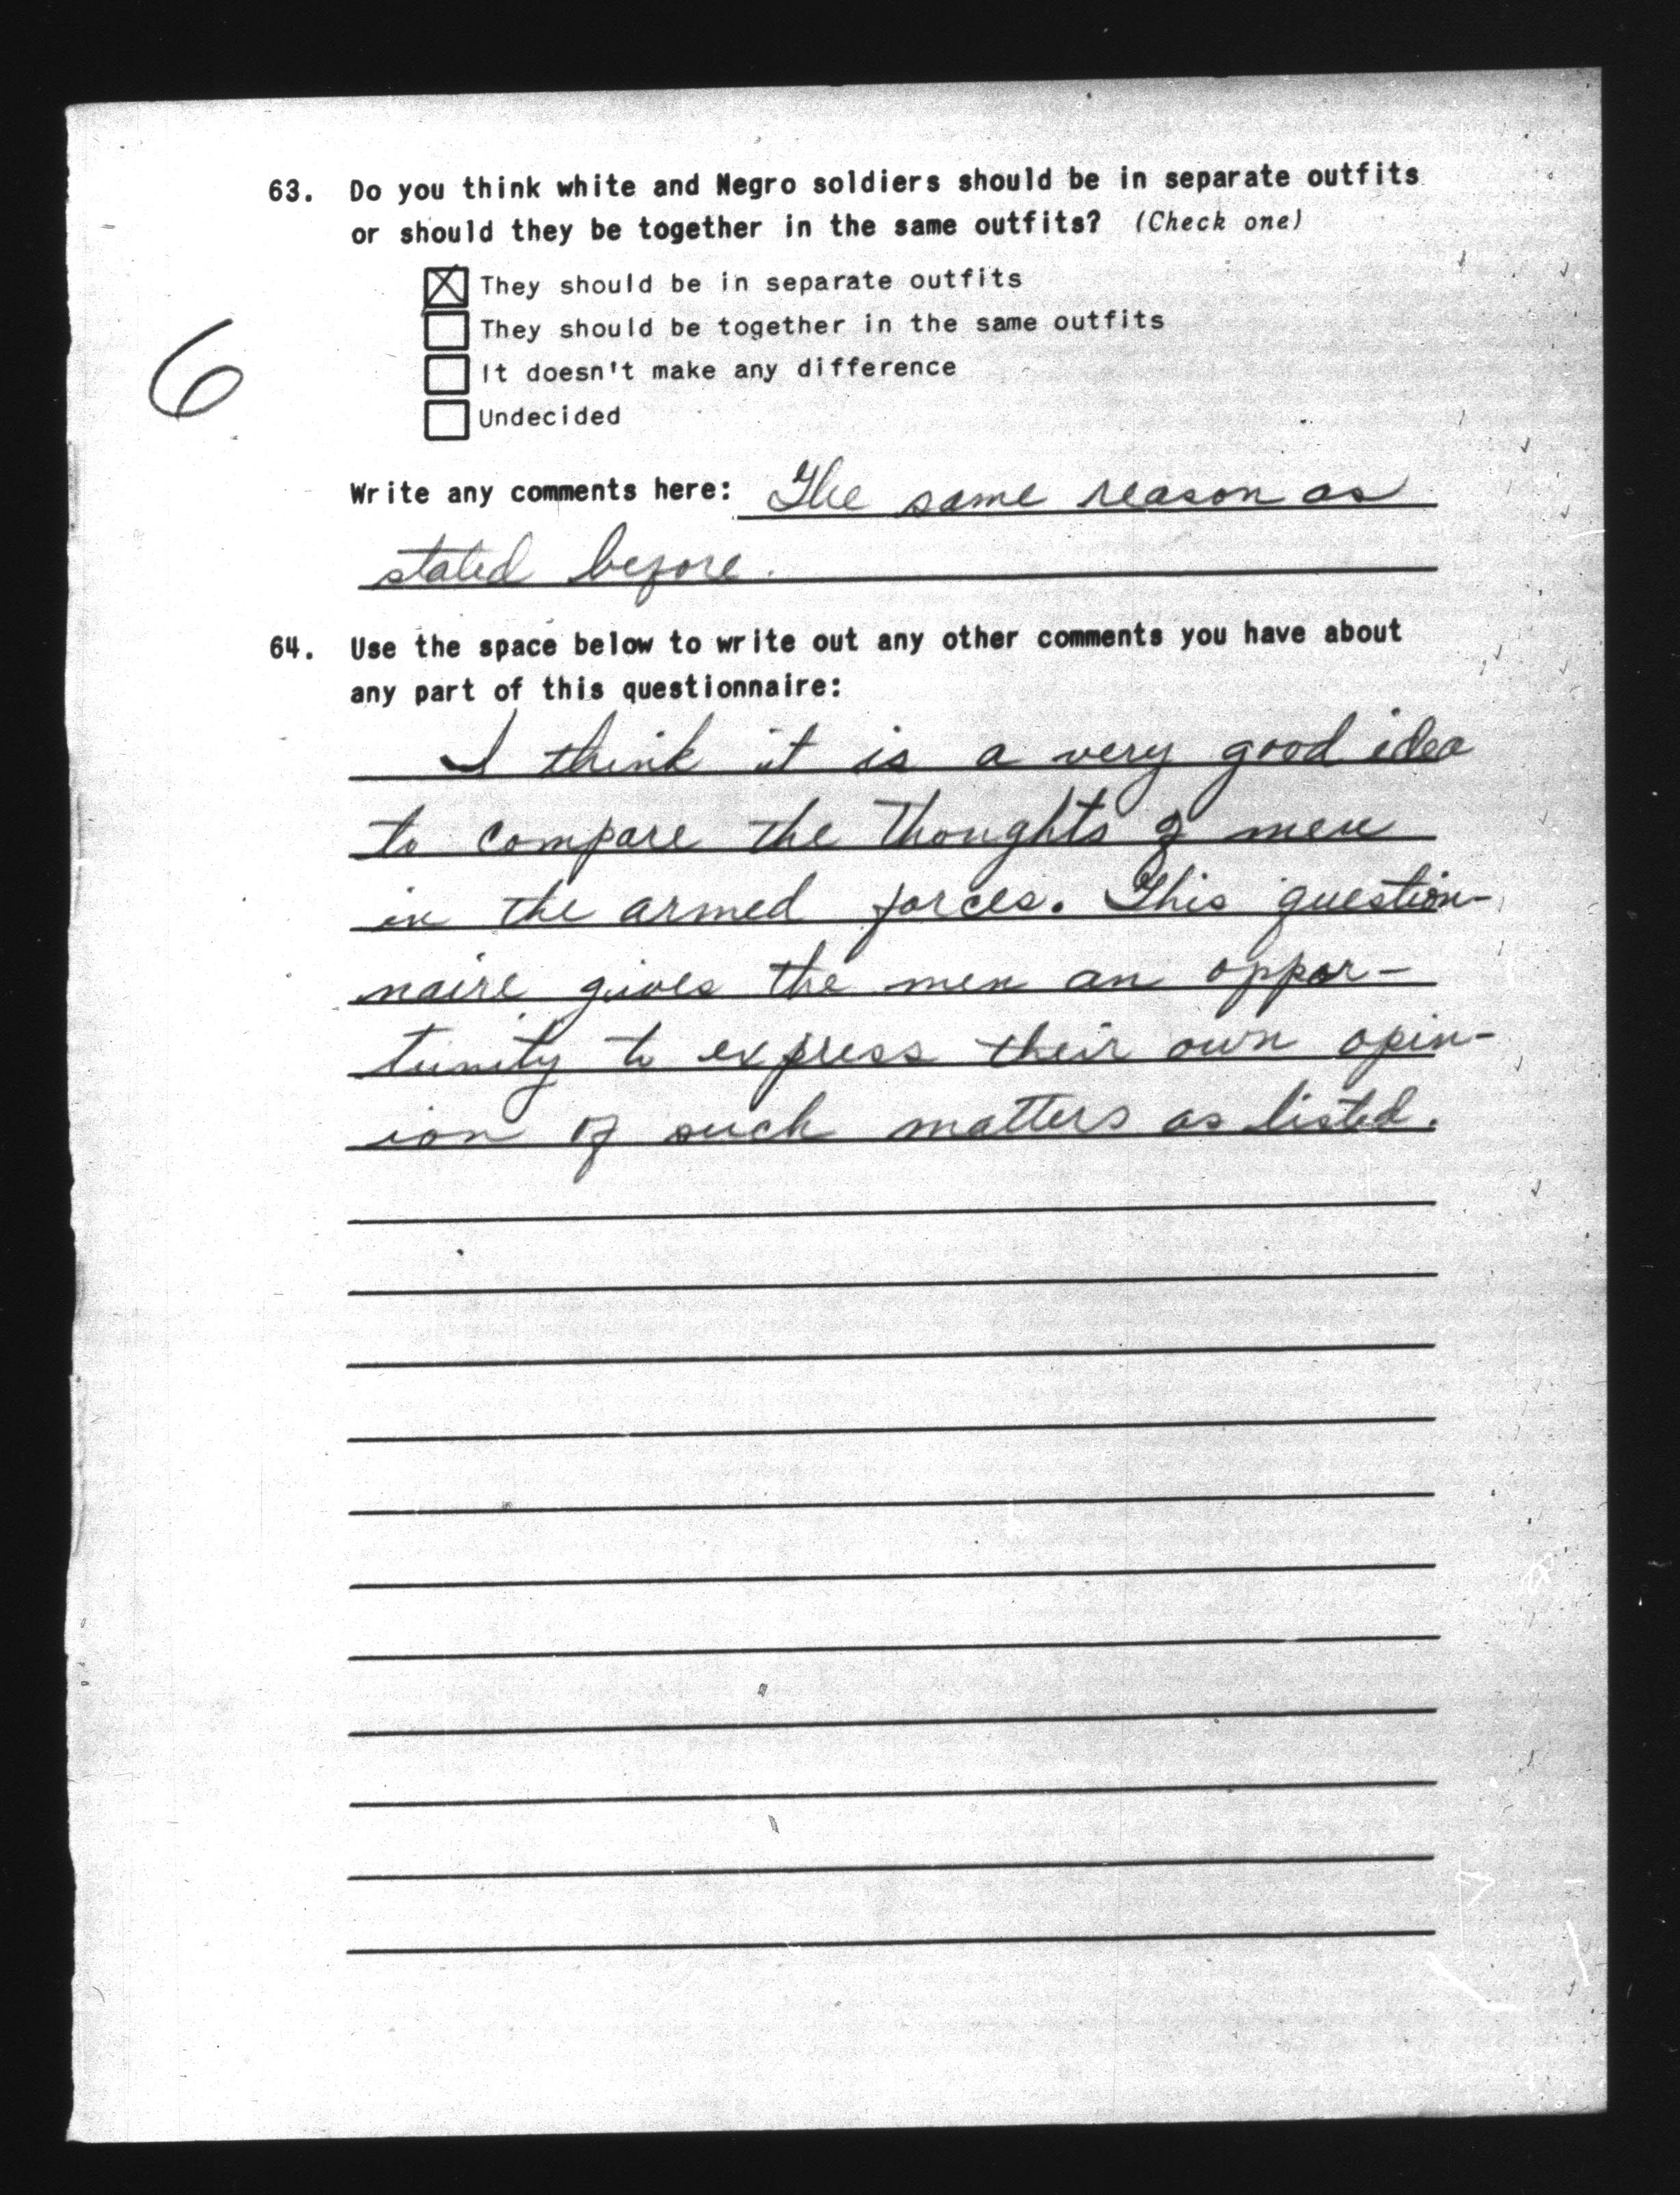 63. Do you think white and Negro soldiers should be in separate outfits
or should they be together in the same outfits? (Check one)
They should be in separate outfits
They should be together in the same outfits
6
It doesn't make any difference
Undecided
Write any comments here: The same reason as
stated before.
64. Use the space below to write out any other comments you have about
any part of this questionnaire:
I think it is a very good idea
to compare the thoughts of men
in the armed forces. This question-
naire gives the men an oppor-
tunity to express their own opin-
ion of such matters as listed.